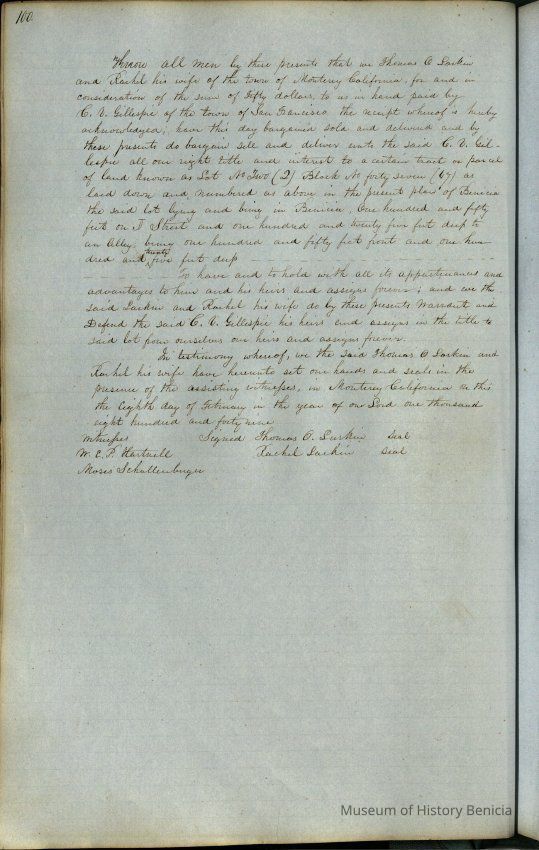 100.
Know all men by these presents that we Thomas O Larkin
and Rachel his wife of the town of Monterey California, for and in
consideration of the sum of fifty dollars, to us in hand paid by
C. V. Gillespie of the town of San Francisco the receipt whereof is hereby
acknowledged, have this day bargained sold and delivered and by
these presents do bargain sell and deliver unto the said C. V. Gil-
lespie all our right title and interest to a certain tract or parcel
of land known as Lot No Two (2) Block No forty seven (47) as
laid down and numbered as above in the present plan of Benicia
the said lot lying and being in Benicia, One hundred and fifty
feet on I Street and one hundred and twenty five feet deep to
an Alley being one hundred and fifty feet front and one hun-
dred and twenty five feet deep
To have and to hold with all its appurtenances and
advantages to him and his heirs and assigns forever; and we the
said Larkin and Rachel his wife do by these presents Warrant and
Defend the said C. V. Gillespie his heirs and assigns in the title to
said lot from ourselves our heirs and assigns forever.
In testimony whereof, we the said Thomas O Larkin and
Rachel his wife have hereunto set our hands and seals in the
presence of the assisting witnesses, in Monterey California on this
the Eighth day of February in the year of our Lord one thousand
eight hundred and forty nine
Witnesses Signed Thomas O. Larkin Seal
W. E. P. Hartnell Rachel Larkin Seal
Moses Schallenberger
Museum of History Benicia